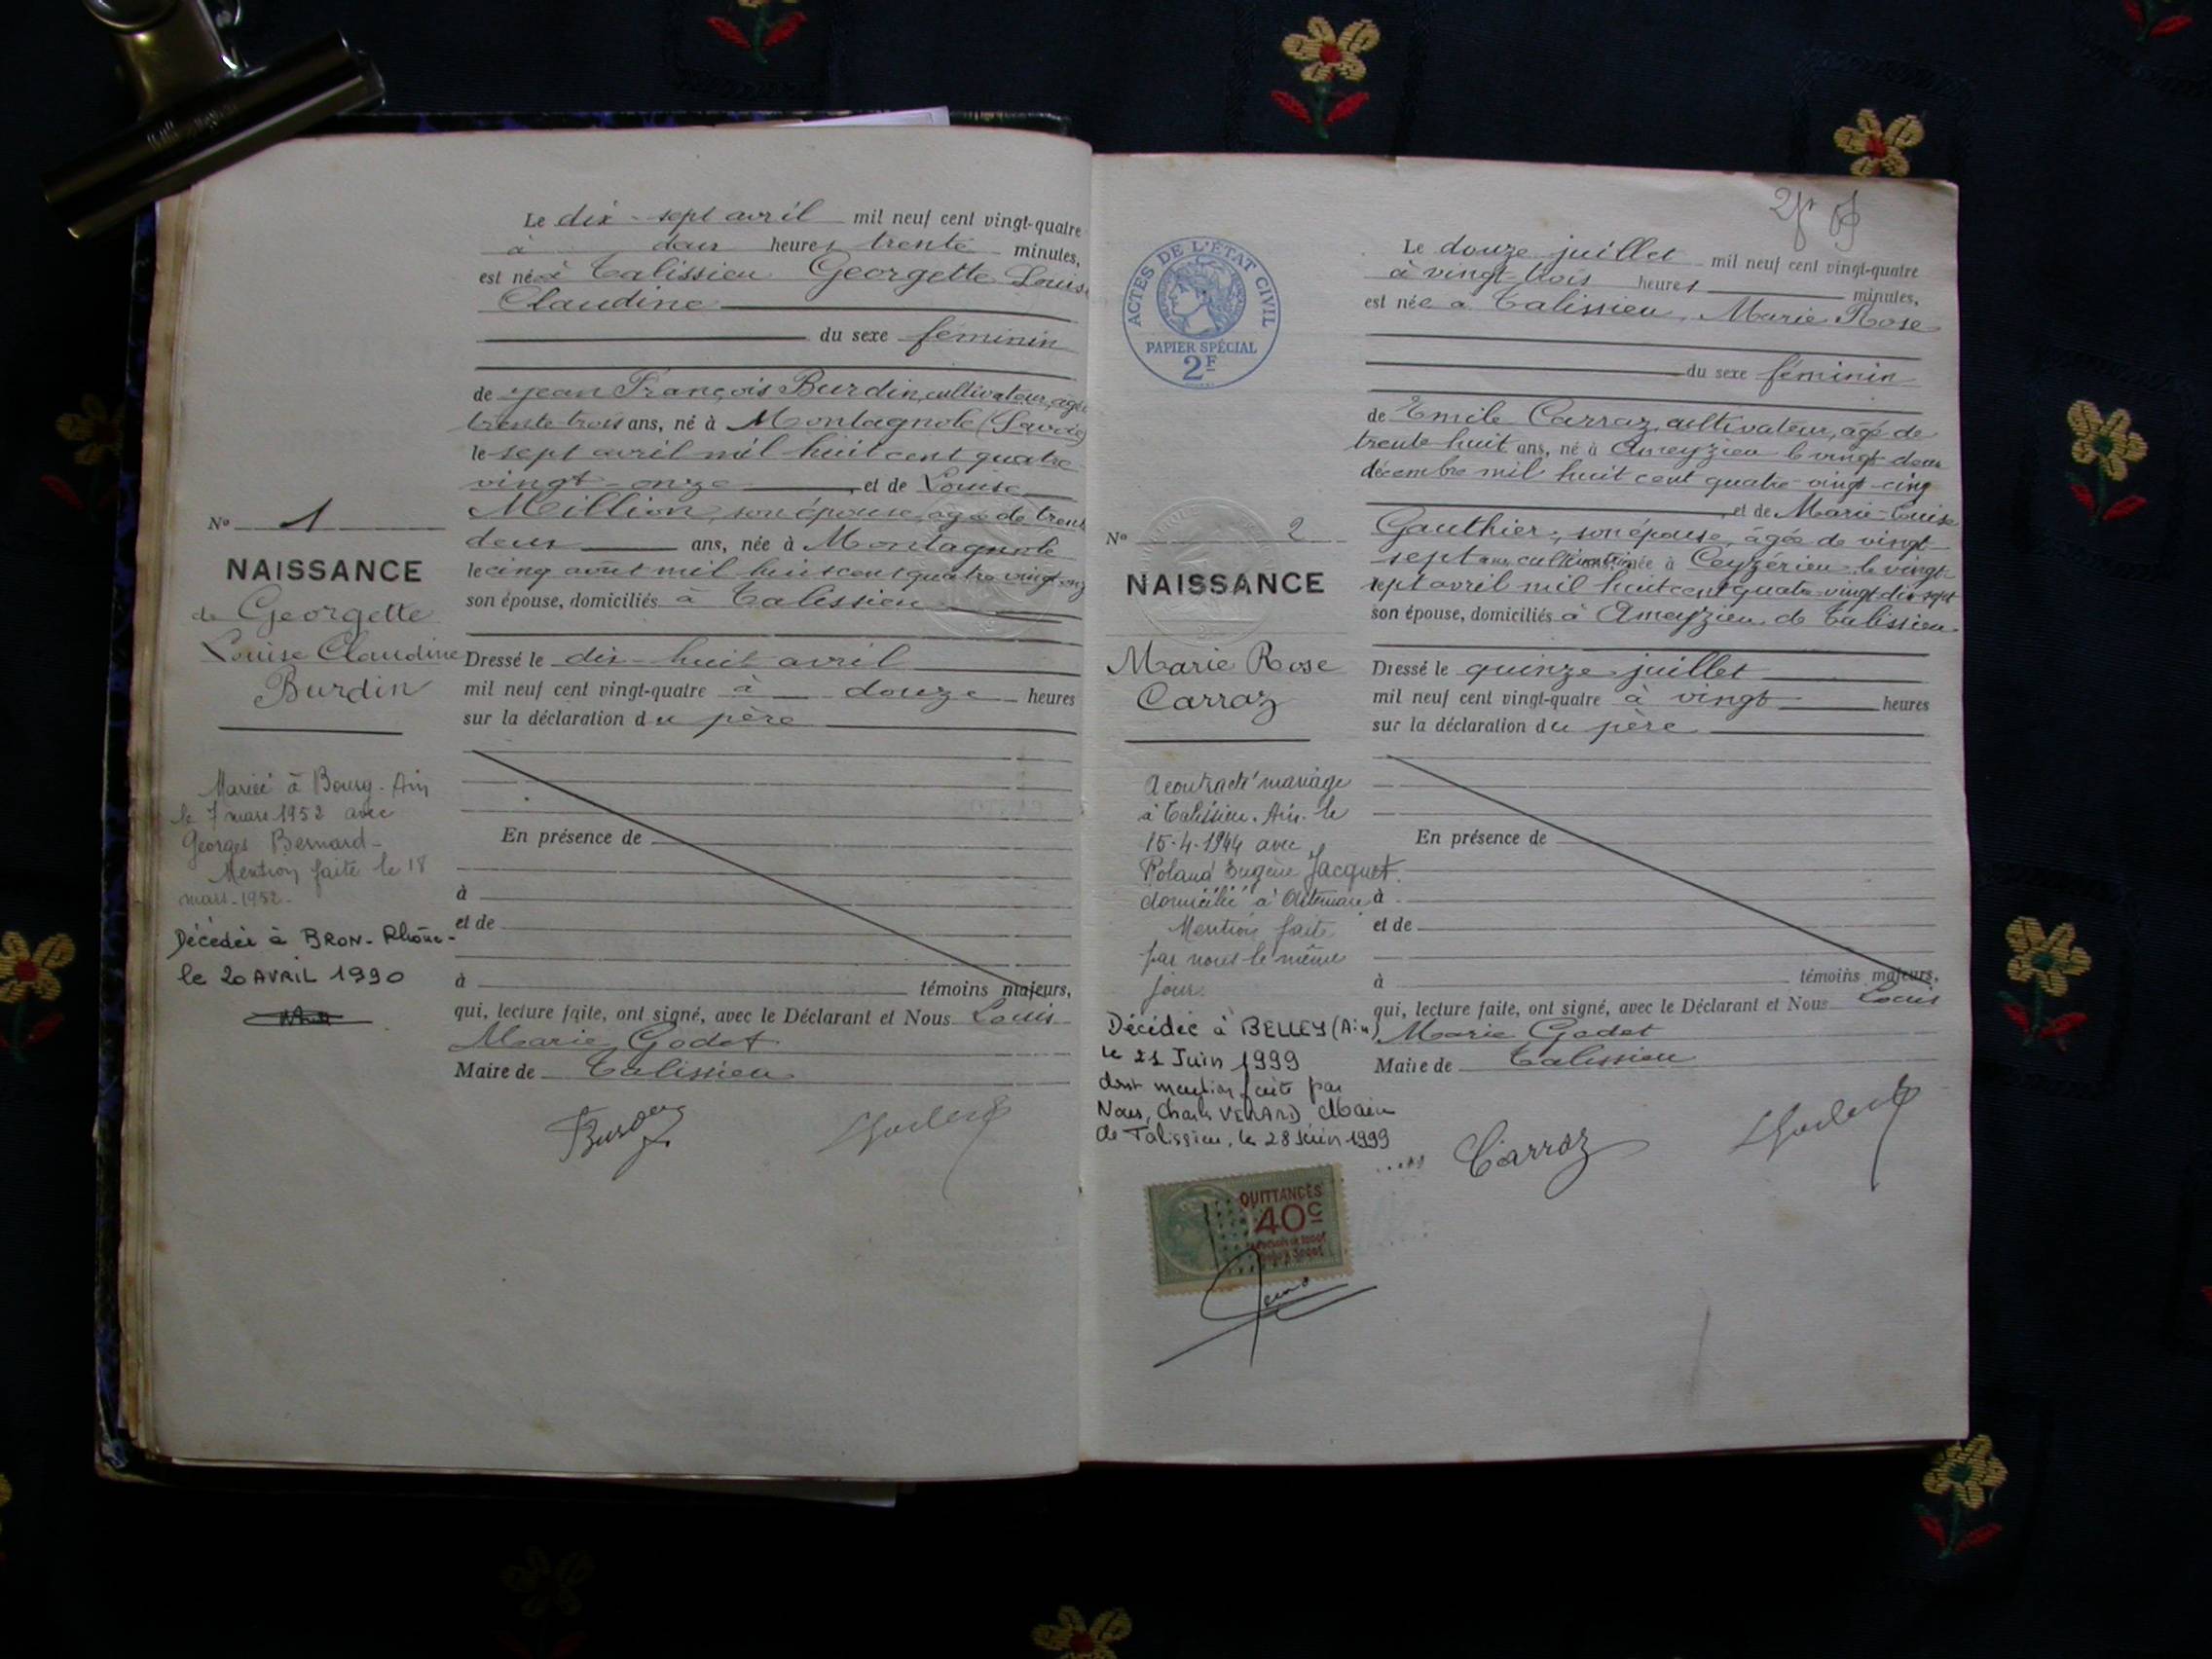 Le dix-sept avril mil neuf cent vingt-quatre
à deux heures trente minutes,
est née à Talissieu Georgette Louise
Claudine
du sexe féminin
de Jean François Burdin, cultivateur, agé
trente trois ans, né à Montagnole (Savoie)
le sept avril mil huit cent quatre
vingt-onze et de Louise
Meillion, son épouse, agée de trente
deux ans, née à Montagnole
le cinq août mil huit cent quatre vingt onz
son épouse, domiciliés à Talissieu
Dressé le dix-huit avril
mil neuf cent vingt-quatre à douze heures
sur la déclaration du père
En présence de
à
et de
à témoins majeurs,
qui, lecture faite, ont signé, avec le Déclarant et Nous Louis
Marie Godet
Maire de Talissieu
Burdin
No 1
NAISSANCE
de Georgette
Louise Claudine
Burdin
Mariée à Bourg-Ain
le 7 mars 1952 avec
Georges Bernard-
Mention faite le 18
mars-1952.
Décédée à BRON-Rhône-
le 20 AVRIL 1990
ACTES DE L'ÉTAT CIVIL
PAPIER SPÉCIAL
2F
Le douze juillet mil neuf cent vingt-quatre
à vingt-trois heures minutes,
est née à Talissieu, Marie Rose
du sexe féminin
de Emile Carraz, cultivateur, agé de
trente huit ans, né à Ameyzieu le vingt-deux
décembre mil huit cent quatre-vingt-cinq
et de Marie-Louise
Gauthier, son épouse, âgée de vingt-
sept ans, cultivatrice née à Ceyzérieu le vingt-
sept avril mil huit cent quatre-vingt-dix-sept
son épouse, domiciliés à Ameyzieu de Talissieu
Dressé le quinze juillet
mil neuf cent vingt-quatre à vingt heures
sur la déclaration du père
En présence de
à
et de
à témoins majeurs,
qui, lecture faite, ont signé, avec le Déclarant et Nous Louis
Marie Godet
Maire de Talissieu
Carraz
No 2
NAISSANCE
Marie Rose
Carraz
A contracté mariage
à Talissieu. Ain. le
15-4-1944 avec
Roland Eugène Jacquet.
domicilié à
Mention faite
par nous le même
jour.
Décédée à BELLEY (Ain)
le 21 Juin 1999
dont mention faite par
Nous, Charles VERARD Maire
de Talissieu, le 28 Juin 1999
QUITTANCES
40c